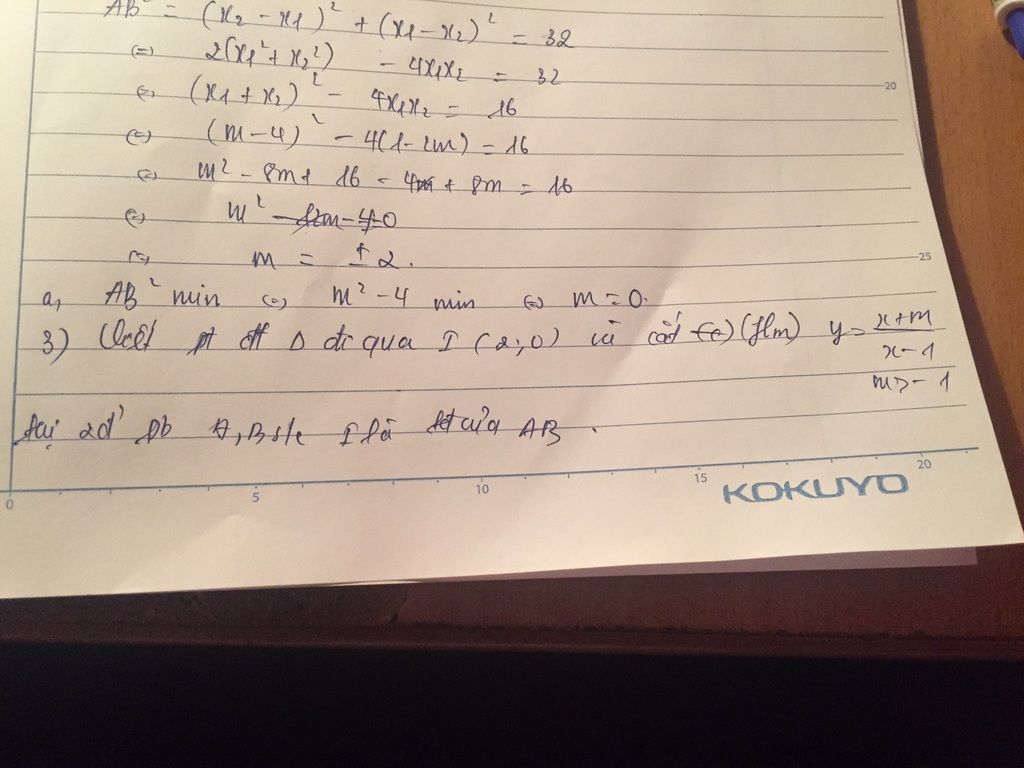 AB² = (x₂ - x₁)² + (x₁ - x₂)² = 32
⇔ 2(x₁² + x₂²) - 4x₁x₂ = 32
⇔ (x₁ + x₂)² - 4x₁x₂ = 16
⇔ (m - 4)² - 4(1 - 2m) = 16
⇔ m² - 8m + 16 - 4 + 8m = 16
⇔ m²
⇔ m = ± 2.
a, AB² min ⇔ m² - 4 min ⇔ m = 0.
3) Viết pt đt Δ đi qua I (2;0) và cắt (Hm) y = x+m / x-1
m > -1
tại 2đ' pb A, B s/c I là tđ của AB.
20
25
0 5 10 15 20
KOKUYO